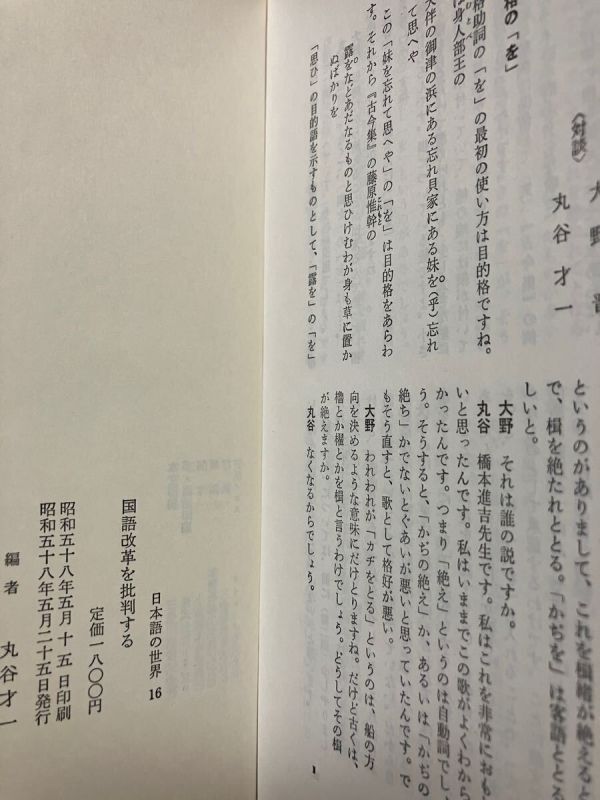 〈対談〉
大野 晋
丸谷才一
格の「を」
格助詞の「を」の最初の使い方は目的格ですね。
身人部王の
大伴の御津の浜にある忘れ貝家にある妹を(乎)忘れ
て思へや
この「妹を忘れて思へや」の「を」は目的格をあらわ
す。それから『古今集』の藤原惟幹の
露をなどあだなるものと思ひけむわが身も草に置か
ぬばかりを
「思ひ」の目的語を示すものとして、「露を」の「を」
というのがありまして、これを楫緒が絶えると
で、楫を絶たれととる。「かぢを」は客語ととる
しいと。
大野 それは誰の説ですか。
丸谷 橋本進吉先生です。私はこれを非常におも
いと思ったんです。私はいままでこの歌がよくわから
かったんです。つまり「絶え」というのは自動詞でし
う。そうすると、「かぢの絶え」か、あるいは「かぢの
絶ち」かでないとぐあいが悪いと思っていたんです。で
もそう直すと、歌として格好が悪い。
大野 われわれが「カヂをとる」というのは、船の方
向を決めるような意味にだけとりますね。だけど古くは、
櫓とか櫂とかを楫と言うわけでしょう。どうしてその楫
が絶えますか。
丸谷 なくなるからでしょう。
1
日本語の世界 16
国語改革を批判する
定価一八〇〇円
昭和五十八年五月十五日印刷
昭和五十八年五月二十五日発行
編者 丸谷才一